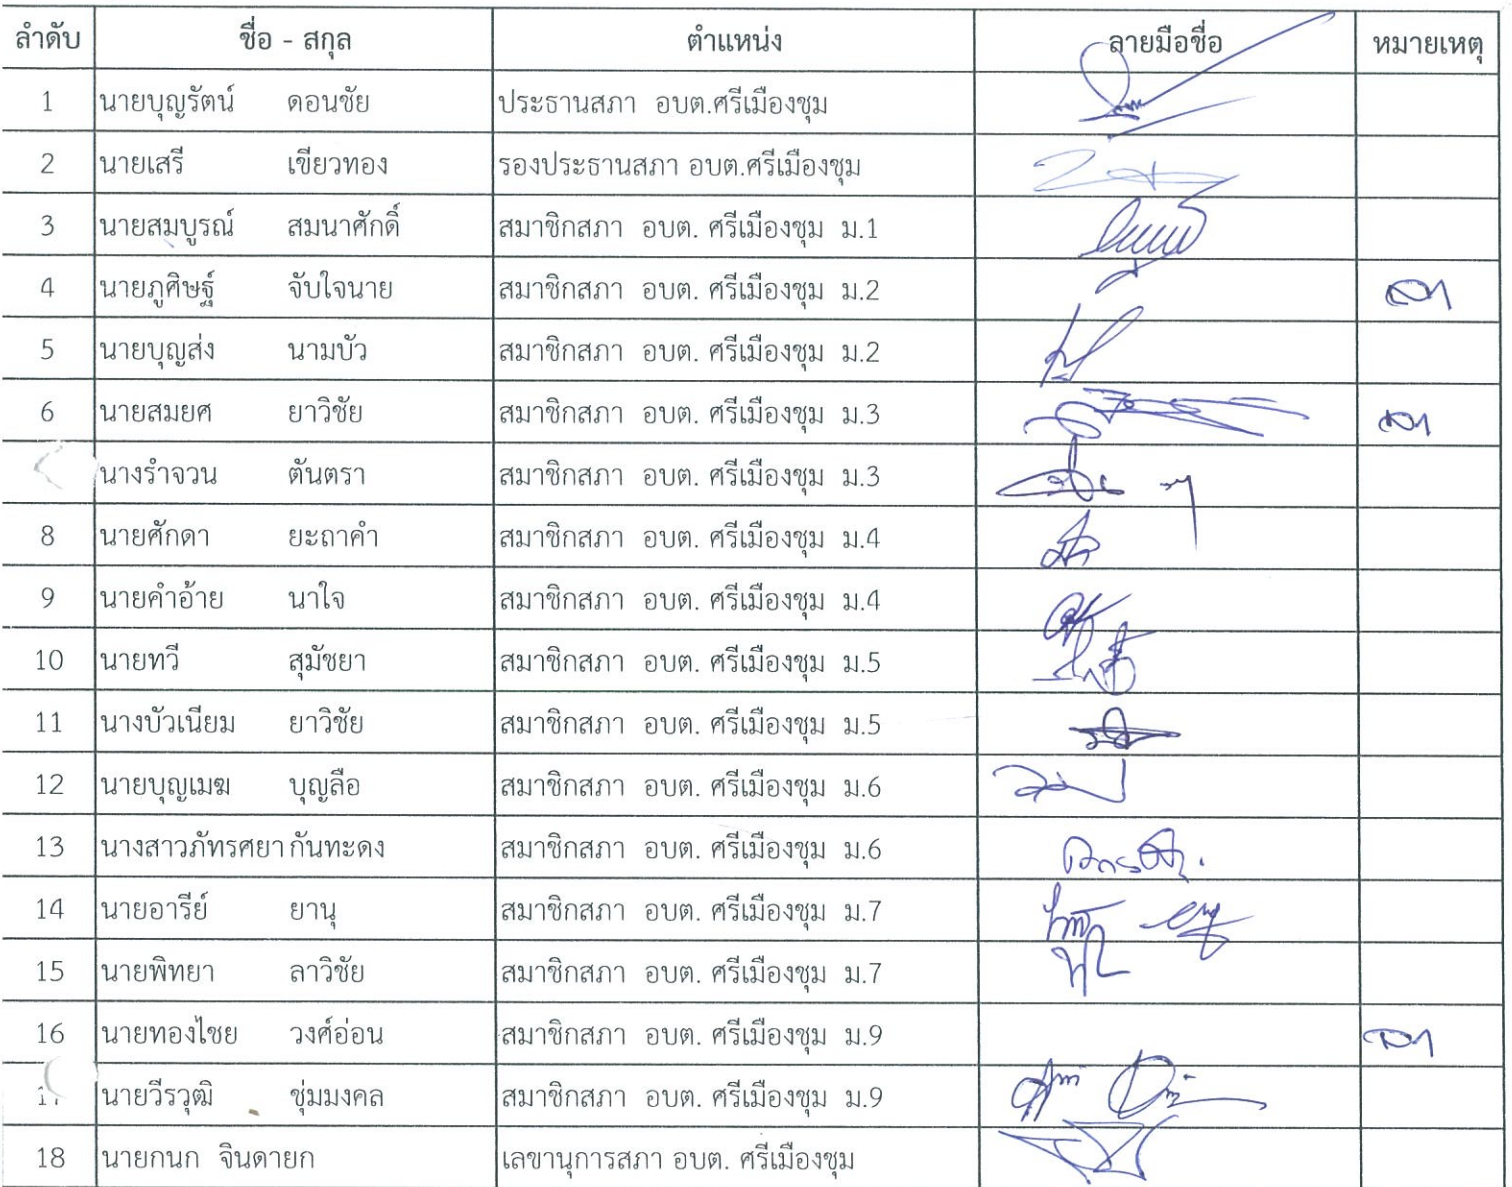 ลำดับ ชื่อ - สกุล ตำแหน่ง ลายมือชื่อ หมายเหตุ
1 นายบุญรัตน์ ดอนชัย ประธานสภา อบต.ศรีเมืองชุม
2 นายเสรี เขียวทอง รองประธานสภา อบต.ศรีเมืองชุม
3 นายสมบูรณ์ สมนาศักดิ์ สมาชิกสภา อบต. ศรีเมืองชุม ม.1
4 นายภูศิษฐ์ จับใจนาย สมาชิกสภา อบต. ศรีเมืองชุม ม.2 ลา
5 นายบุญส่ง นามบัว สมาชิกสภา อบต. ศรีเมืองชุม ม.2
6 นายสมยศ ยาวิชัย สมาชิกสภา อบต. ศรีเมืองชุม ม.3 ลา
นางรำจวน ตันตรา สมาชิกสภา อบต. ศรีเมืองชุม ม.3
8 นายศักดา ยะถาคำ สมาชิกสภา อบต. ศรีเมืองชุม ม.4
9 นายคำอ้าย นาใจ สมาชิกสภา อบต. ศรีเมืองชุม ม.4
10 นายทวี สุมัชยา สมาชิกสภา อบต. ศรีเมืองชุม ม.5
11 นางบัวเนียม ยาวิชัย สมาชิกสภา อบต. ศรีเมืองชุม ม.5
12 นายบุญเมฆ บุญลือ สมาชิกสภา อบต. ศรีเมืองชุม ม.6
13 นางสาวภัทรศยา กันทะดง สมาชิกสภา อบต. ศรีเมืองชุม ม.6
14 นายอารีย์ ยานุ สมาชิกสภา อบต. ศรีเมืองชุม ม.7
15 นายพิทยา ลาวิชัย สมาชิกสภา อบต. ศรีเมืองชุม ม.7
16 นายทองไชย วงศ์อ่อน สมาชิกสภา อบต. ศรีเมืองชุม ม.9 ลา
17 นายวีรวุฒิ ชุ่มมงคล สมาชิกสภา อบต. ศรีเมืองชุม ม.9
18 นายกนก จินดายก เลขานุการสภา อบต. ศรีเมืองชุม